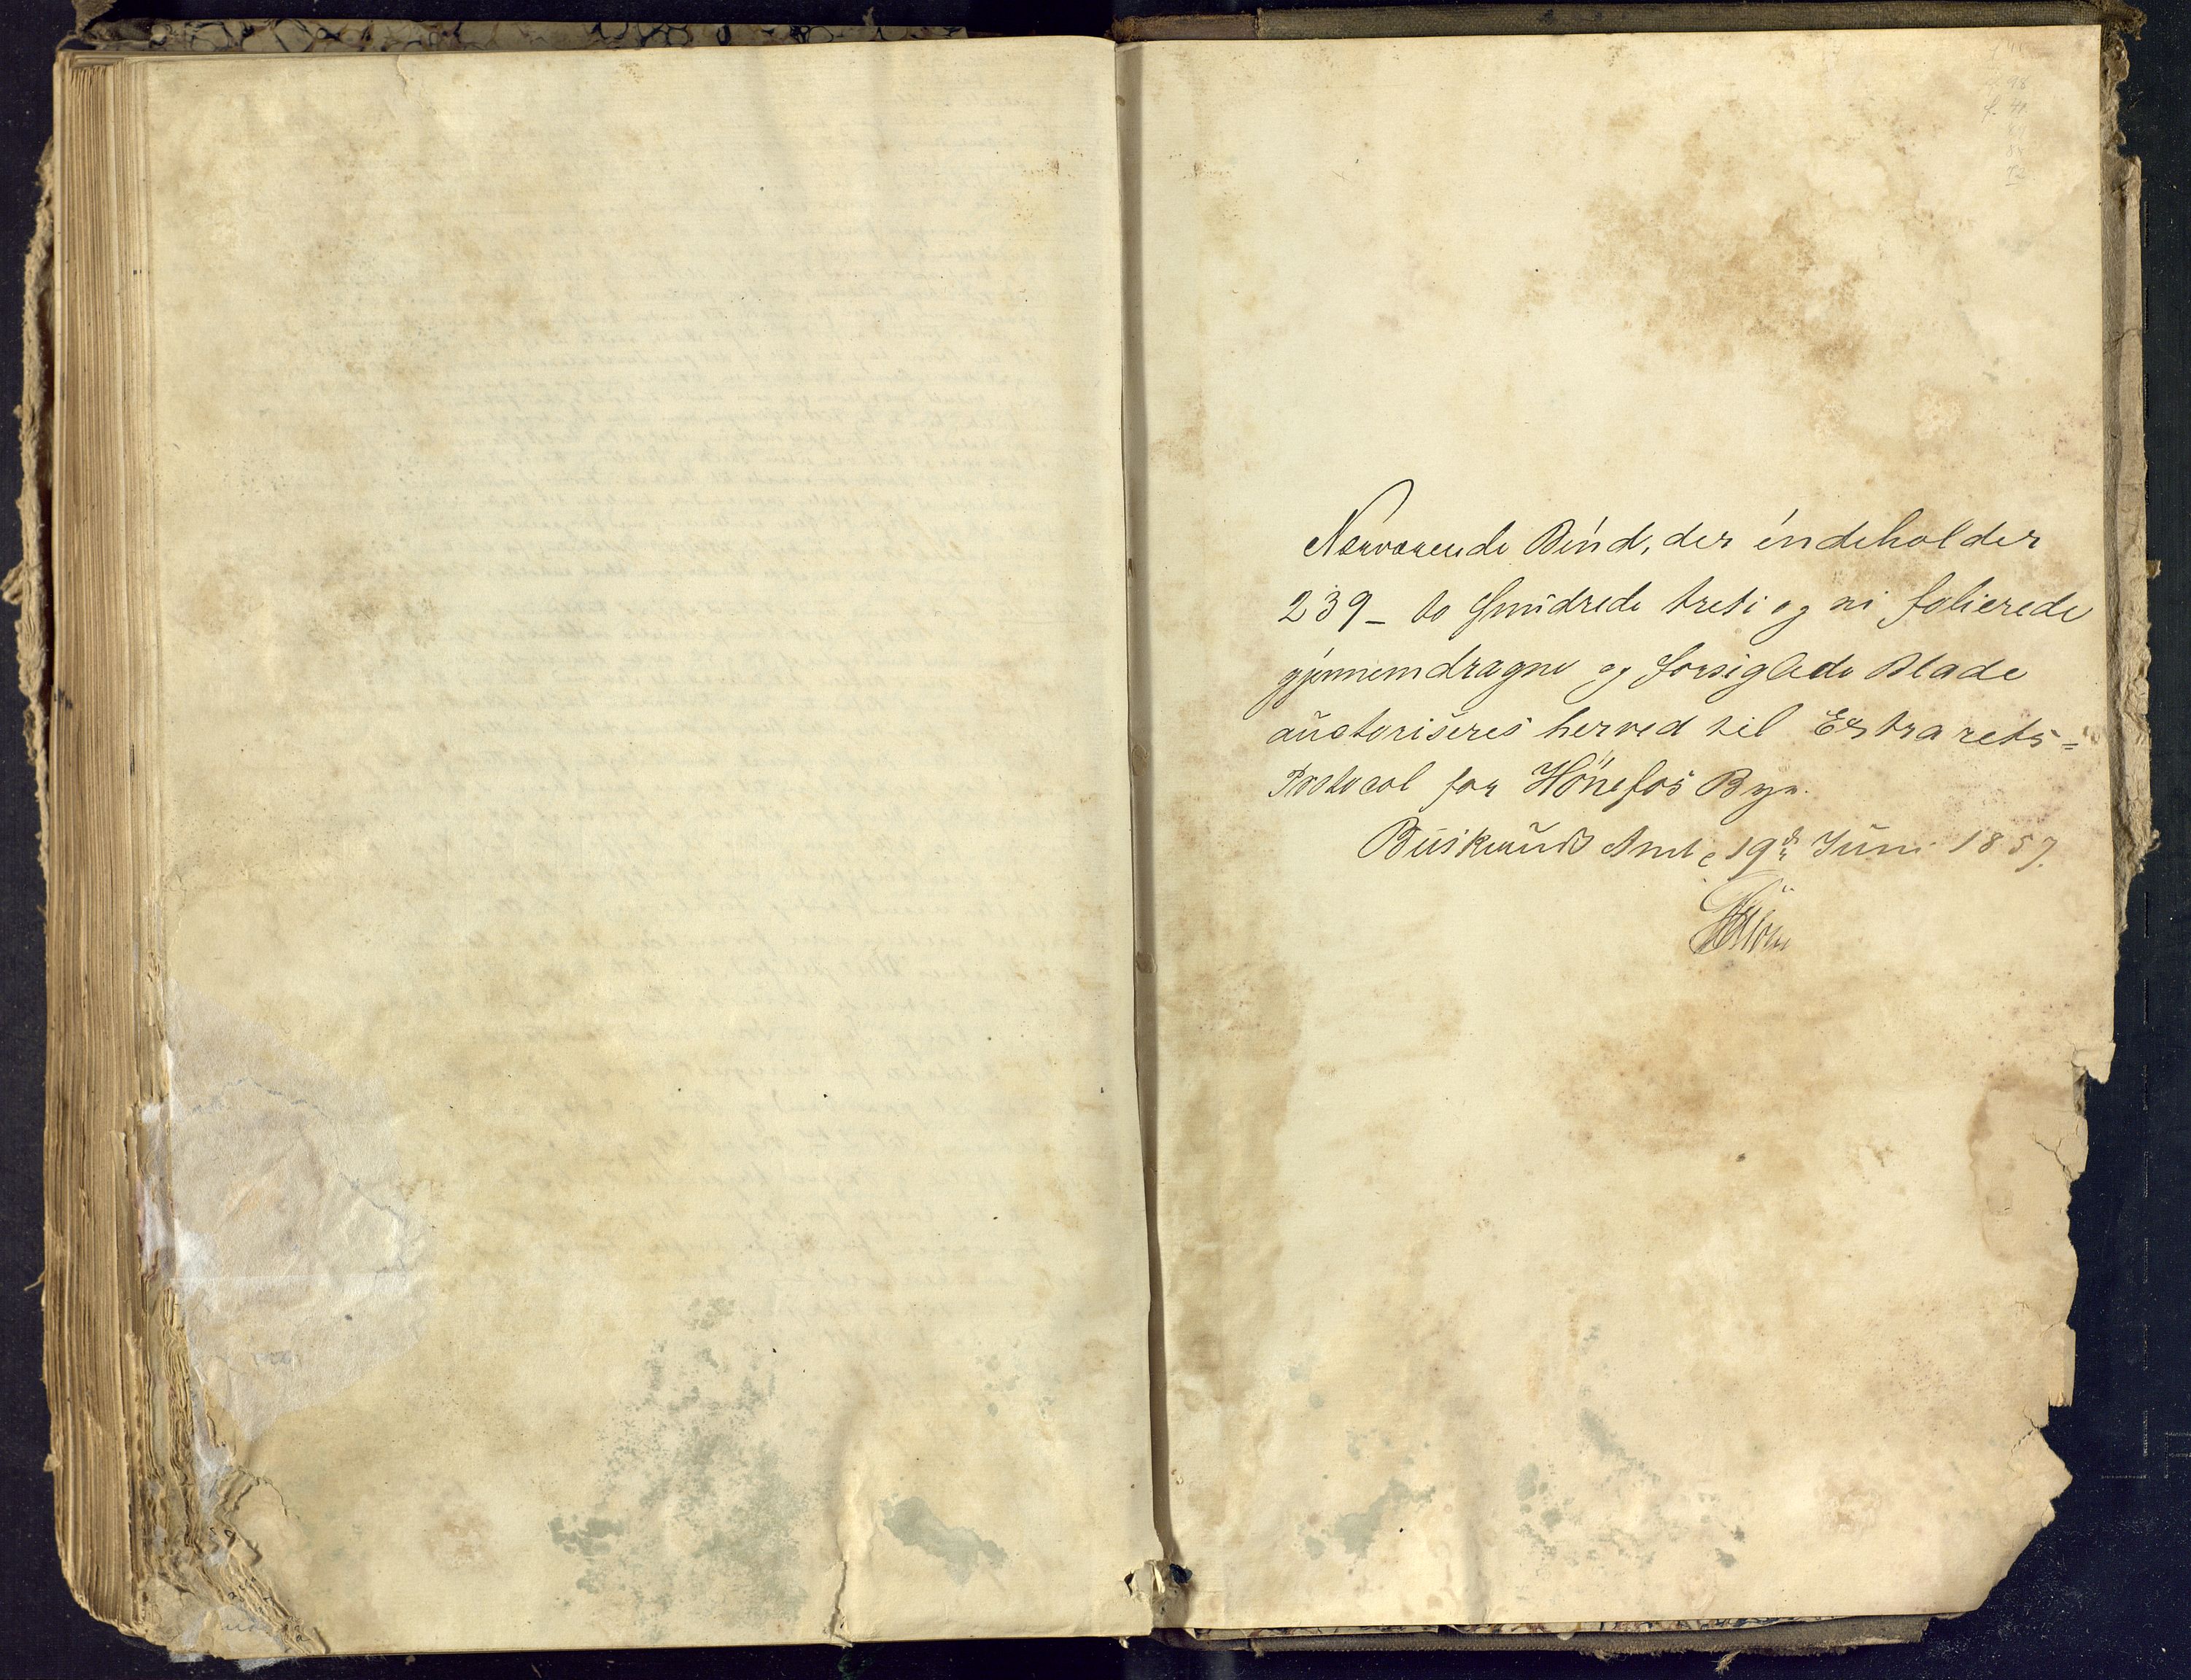 Nærværende Bind, der indeholder
239 - to Hundrede treti og ni folierede
gjennemdragne og forsiglede Blade
auctoriseres herved til Extrarets=
Protocol for Hönefos By.
Buskeruds Amt 19de Juni 1857.